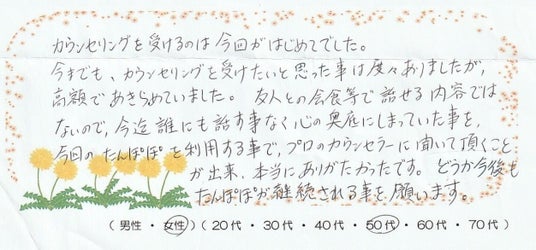 カウンセリングを受けるのは今回がはじめてでした。
今までも、カウンセリングを受けたいと思った事は度々ありましたが、
高額であきらめていました。友人との会食等で話せる内容では
ないので、今迄誰にも話す事なく心の奥底にしまっていた事を、
今回のたんぽぽを利用する事で、プロのカウンセラーに聞いて頂くこと
が出来、本当にありがたかったです。どうか今後も
たんぽぽが継続される事を願います。
(男性・女性)(20代・30代・40代・50代・60代・70代)